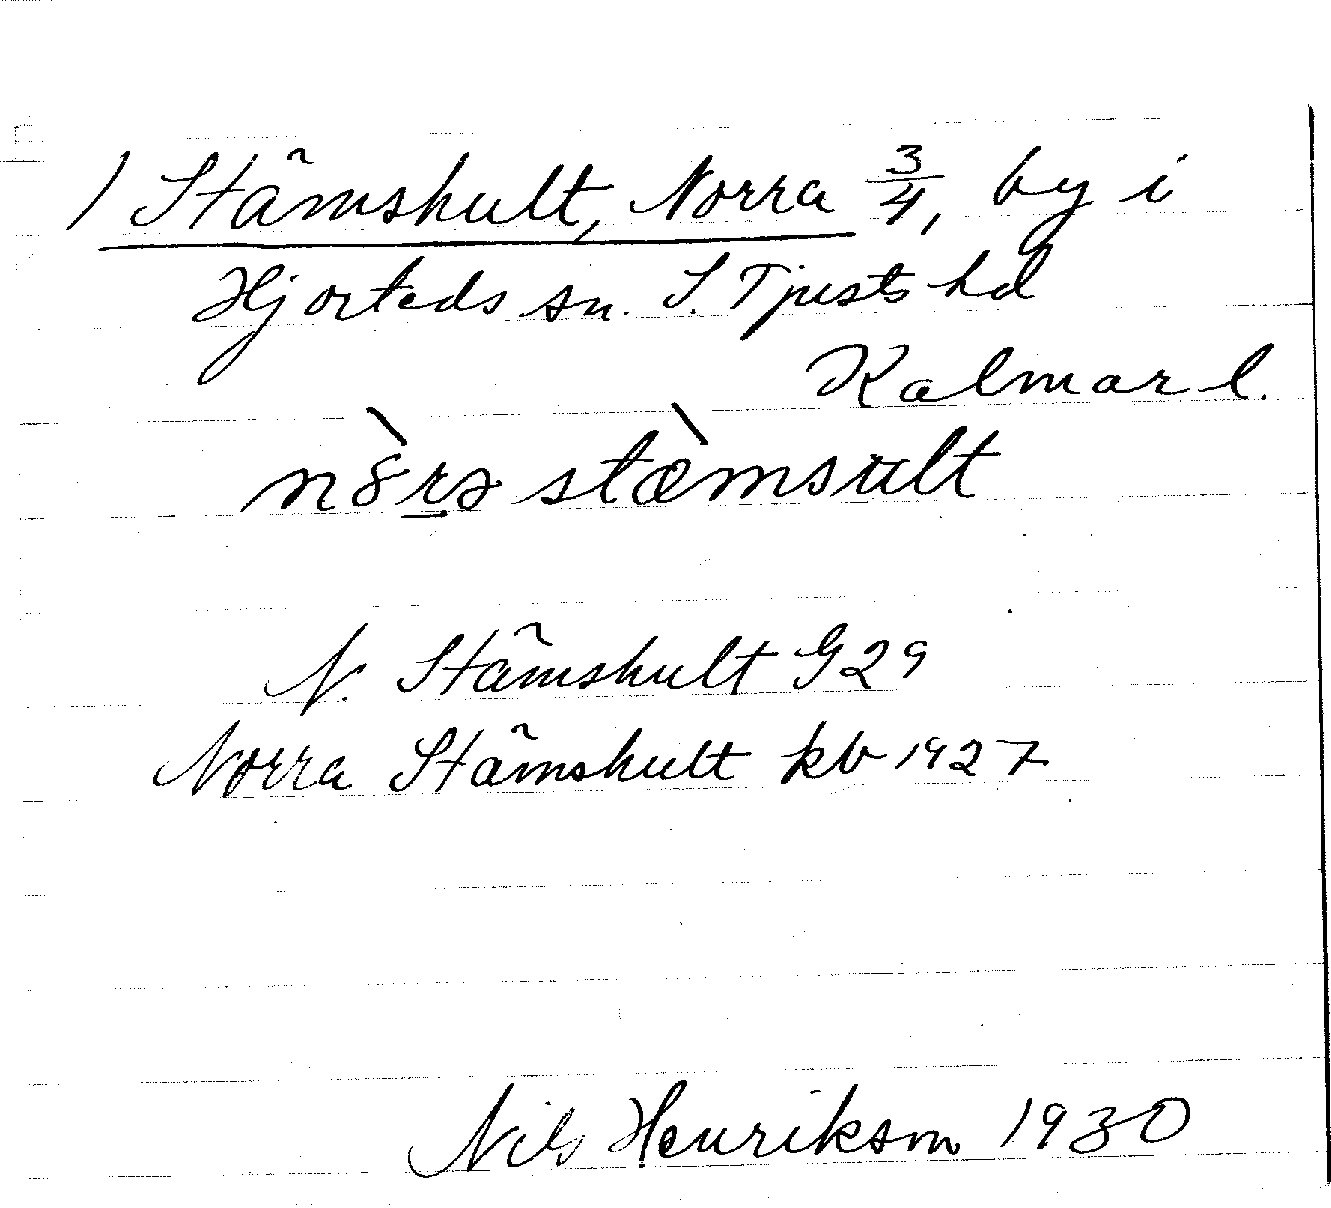 1 Stämshult, Norra 3/4, by i
Hjorteds sn. S. Tjusts hd
Kalmar l.
nȯ̀rə stæ̀msult
N. Stämshult G 29
Norra Stämshult kb 1927
Nils Henrikson 1930